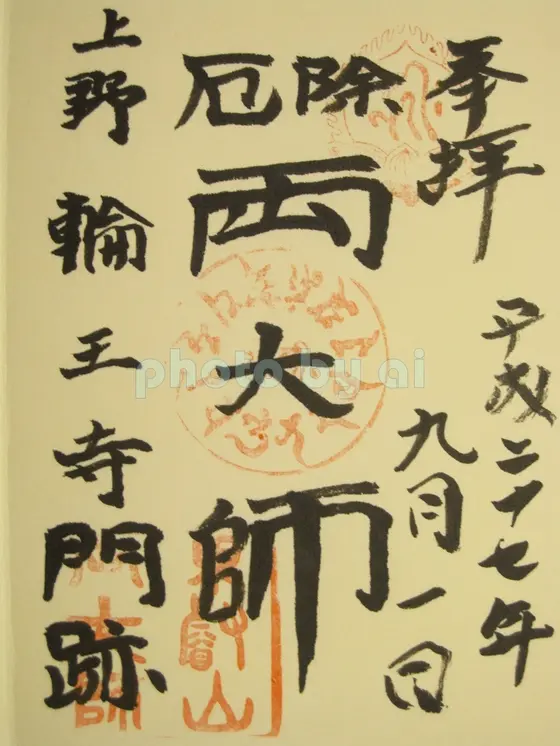 奉拝
平成二十七年
九月一日
除厄
両大師
上野輪王寺門跡
東叡山
photo by ai